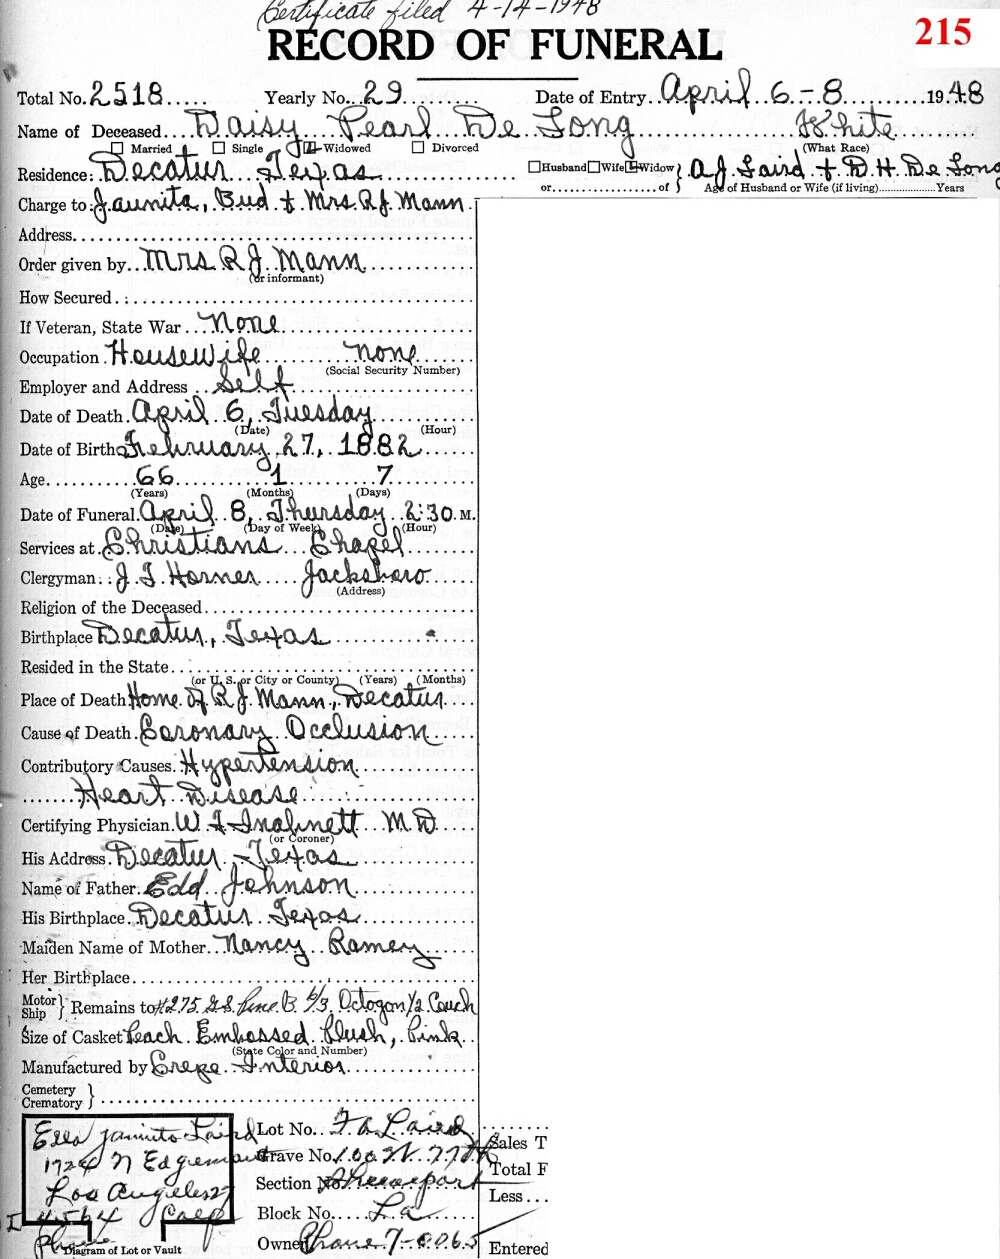 Certificate filed 4-14-1948
215
RECORD OF FUNERAL
Total No. 2518 Yearly No. 29 Date of Entry April 6-8 1948
Name of Deceased Daisy Pearl De Long White
Married Single Widowed Divorced (What Race)
Residence: Decatur Texas Husband Wife Widow or of } A.J. Laird + D.H. De Long
Age of Husband or Wife (if living) Years
Charge to: Jaunita, Bud + Mrs. R.J. Mann
Address
Order given by Mrs R J Mann
(or informant)
How Secured
If Veteran, State War None
Occupation Housewife none
(Social Security Number)
Employer and Address Self
Date of Death April 6, Tuesday
(Date) (Hour)
Date of Birth February 27, 1882
Age 66 1 7
(Years) (Months) (Days)
Date of Funeral April 8, Thursday 2:30 M.
(Date) (Day of Week) (Hour)
Services at Christians Chapel
Clergyman J T Horner Jacksboro
(Address)
Religion of the Deceased
Birthplace Decatur, Texas
Resided in the State
(or U. S. or City or County) (Years) (Months)
Place of Death Home of R J. Mann, Decatur
Cause of Death Coronary Occlusion
Contributory Causes Hypertension
Heart Disease
Certifying Physician W I Inabnett M D
(or Coroner)
His Address Decatur Texas
Name of Father Edd Johnson
His Birthplace Decatur Texas
Maiden Name of Mother Nancy Ramey
Her Birthplace
Motor Ship } Remains to #275 Pine B 6/3 Octogon 1/2 Couch
Size of Casket Peach Embossed Plush, Pink
(State Color and Number)
Manufactured by Crepe Interior
Cemetery
Crematory }
Ella Jaunita Laird
1724 N Edgemont
Los Angeles 27
Calif
Phone
Diagram of Lot or Vault
Lot No. Laird
Grave No. 100 W. 77th
Section No. Shreveport
Block No. La
Owner Phone 7-0065
Sales T
Total F
Less
Entered